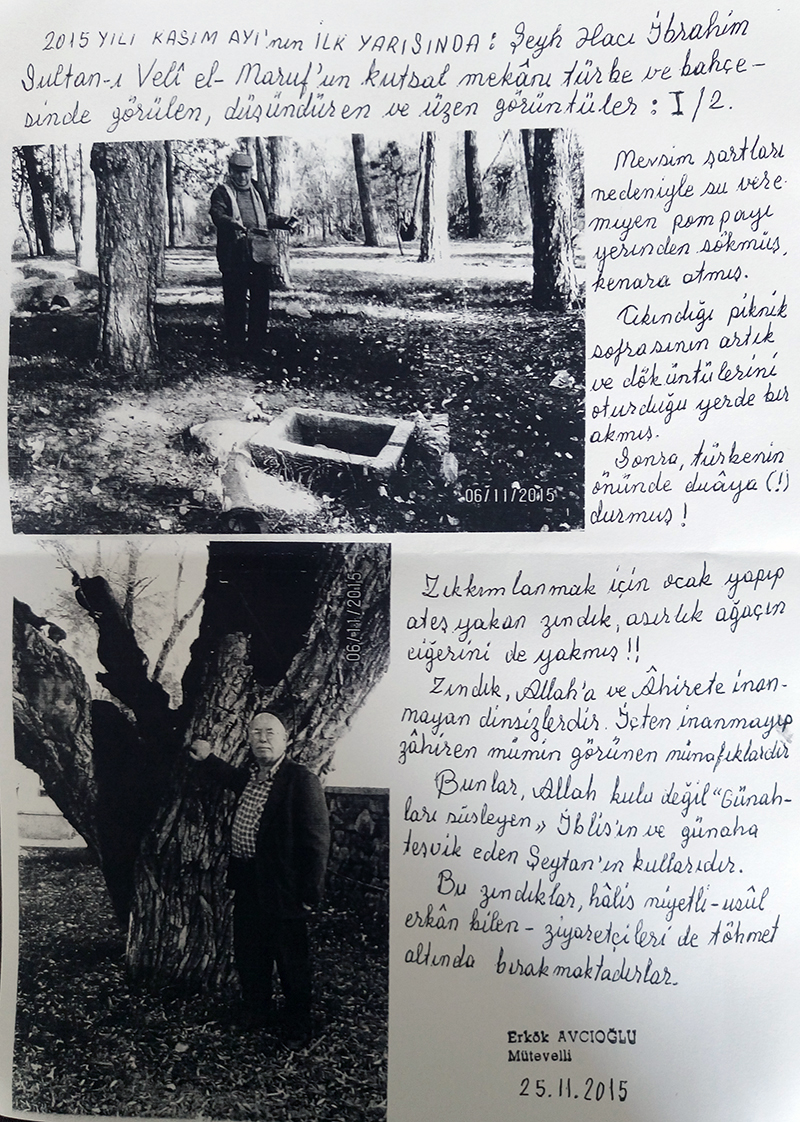 2015 YILI KASIM AYI'nın İLK YARISINDA: Şeyh Hacı İbrahim
Sultan-ı Velî el-Maruf'un kutsal mekânı türbe ve bahçe-
sinde görülen, düşündüren ve üzen görüntüler: I/2.
Mevsim şartları
nedeniyle su vere-
miyen pompayı
yerinden sökmüş,
kenara atmış.
Tıkındığı piknik
sofrasının artık
ve döküntülerini
oturduğu yerde bır
akmış.
Sonra, türbenin
önünde duâya (!)
durmuş!
06/11/2015
Zıkkımlanmak için ocak yapıp
ateş yakan zındık, asırlık ağaçın
ciğerini de yakmış!!
Zındık, Allah'a ve Âhirete inan-
mayan dinsizlerdir. İçten inanmayıp
zâhiren mümin görünen münafıklardır
Bunlar, Allah kulu değil "Günah-
ları süsleyen» İblis'in ve günaha
teşvik eden Şeytan'ın kullarıdır.
Bu zındıklar, hâlis niyetli-usûl
erkân bilen - ziyaretçileri de töhmet
altında bırakmaktadırlar.
06/11/2015
Erkök AVCIOĞLU
Mütevelli
25.11.2015